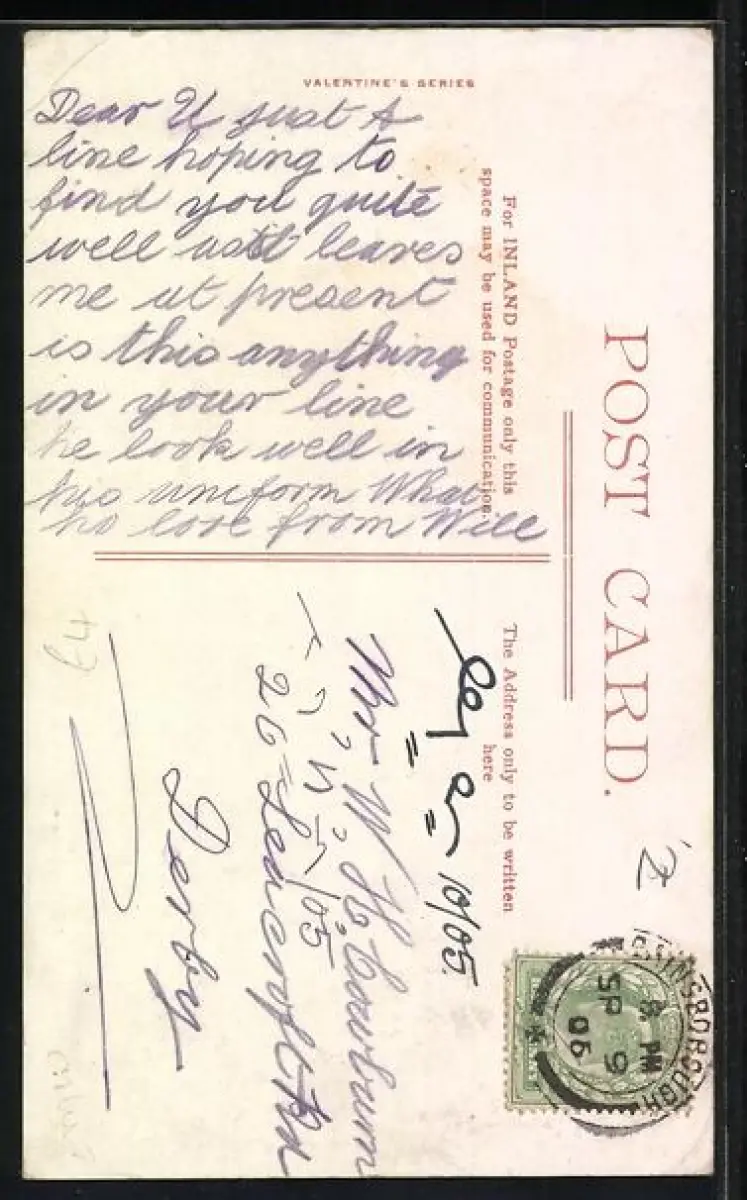 VALENTINE'S SERIES
Dear U just A
line hoping to
find you quite
well as it leaves
me at present
is this anything
in your line
he look well in
his uniform What
ho love from Will
POST CARD.
For INLAND Postage only this
space may be used for communication.
The Address only to be written
here
10/05.
Mr W H Cowburn
26 = Leacroft Rd
Derby
/05
2
GAINSBOROUGH
8 PM
SP 9
06